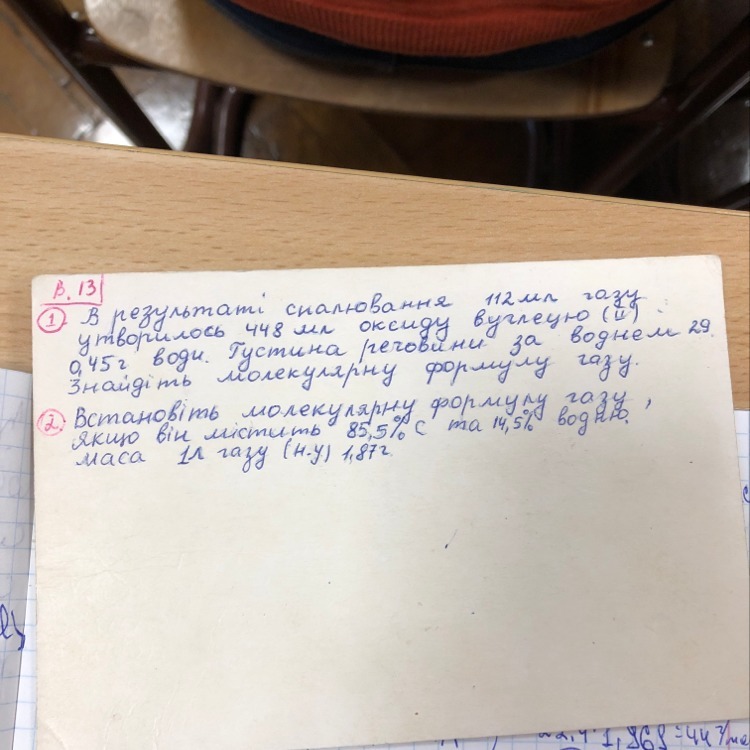 В. 13
1. В результаті спалювання 112 мл газу
утворилось 448 мл оксиду вуглецю (II) і
0,45 г води. Густина речовини за воднем 29.
Знайдіть молекулярну формулу газу.
2. Встановіть молекулярну формулу газу,
якщо він містить 85,5% С та 14,5% водню.
маса 1л газу (н.у) 1,87г.